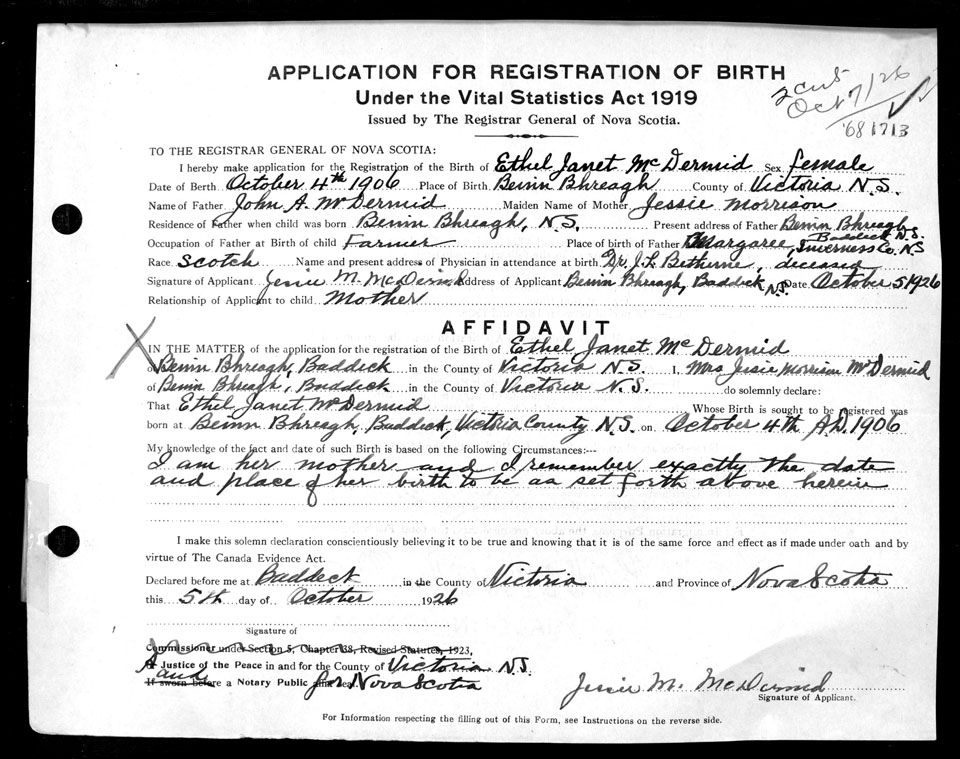 APPLICATION FOR REGISTRATION OF BIRTH
Under the Vital Statistics Act 1919
Issued by The Registrar General of Nova Scotia.
Oct 7/26
681713
TO THE REGISTRAR GENERAL OF NOVA SCOTIA:
I hereby make application for the Registration of the Birth of Ethel Janet McDermid Sex female
Date of Birth October 4th 1906 Place of Birth Beinn Bhreagh County of Victoria N.S.
Name of Father John A. McDermid Maiden Name of Mother Jessie Morrison
Residence of Father when child was born Beinn Bhreagh, N.S. Present address of Father Beinn Bhreagh Baddeck N.S.
Occupation of Father at Birth of child Farmer Place of birth of Father Margaree, Inverness Co. N.S
Race Scotch Name and present address of Physician in attendance at birth Dr. J.L. Bethune, deceased
Signature of Applicant Jessie M. McDermid Address of Applicant Beinn Bhreagh, Baddeck N.S. Date October 5 1926
Relationship of Applicant to child Mother
AFFIDAVIT
X
IN THE MATTER of the application for the registration of the Birth of Ethel Janet McDermid
of Beinn Bhreagh, Baddeck in the County of Victoria N.S. I, Mrs Jessie Morrison McDermid
of Beinn Bhreagh, Baddeck in the County of Victoria N.S. do solemnly declare:
That Ethel Janet McDermid Whose Birth is sought to be registered was
born at Beinn Bhreagh, Baddeck, Victoria County N.S. on October 4th A.D. 1906
My knowledge of the fact and date of such Birth is based on the following Circumstances:—
I am her mother and I remember exactly the date
and place of her birth to be as set forth above herein
I make this solemn declaration conscientiously believing it to be true and knowing that it is of the same force and effect as if made under oath and by
virtue of The Canada Evidence Act.
Declared before me at Baddeck in the County of Victoria and Province of Nova Scotia
this 5th day of October 1926
Signature of
Commissioner under Section 5, Chapter 38, Revised Statutes, 1923,
A Justice of the Peace in and for the County of Victoria N.S.
and
If sworn before a Notary Public for Nova Scotia
Jessie M. McDermid
Signature of Applicant.
For Information respecting the filling out of this Form, see Instructions on the reverse side.